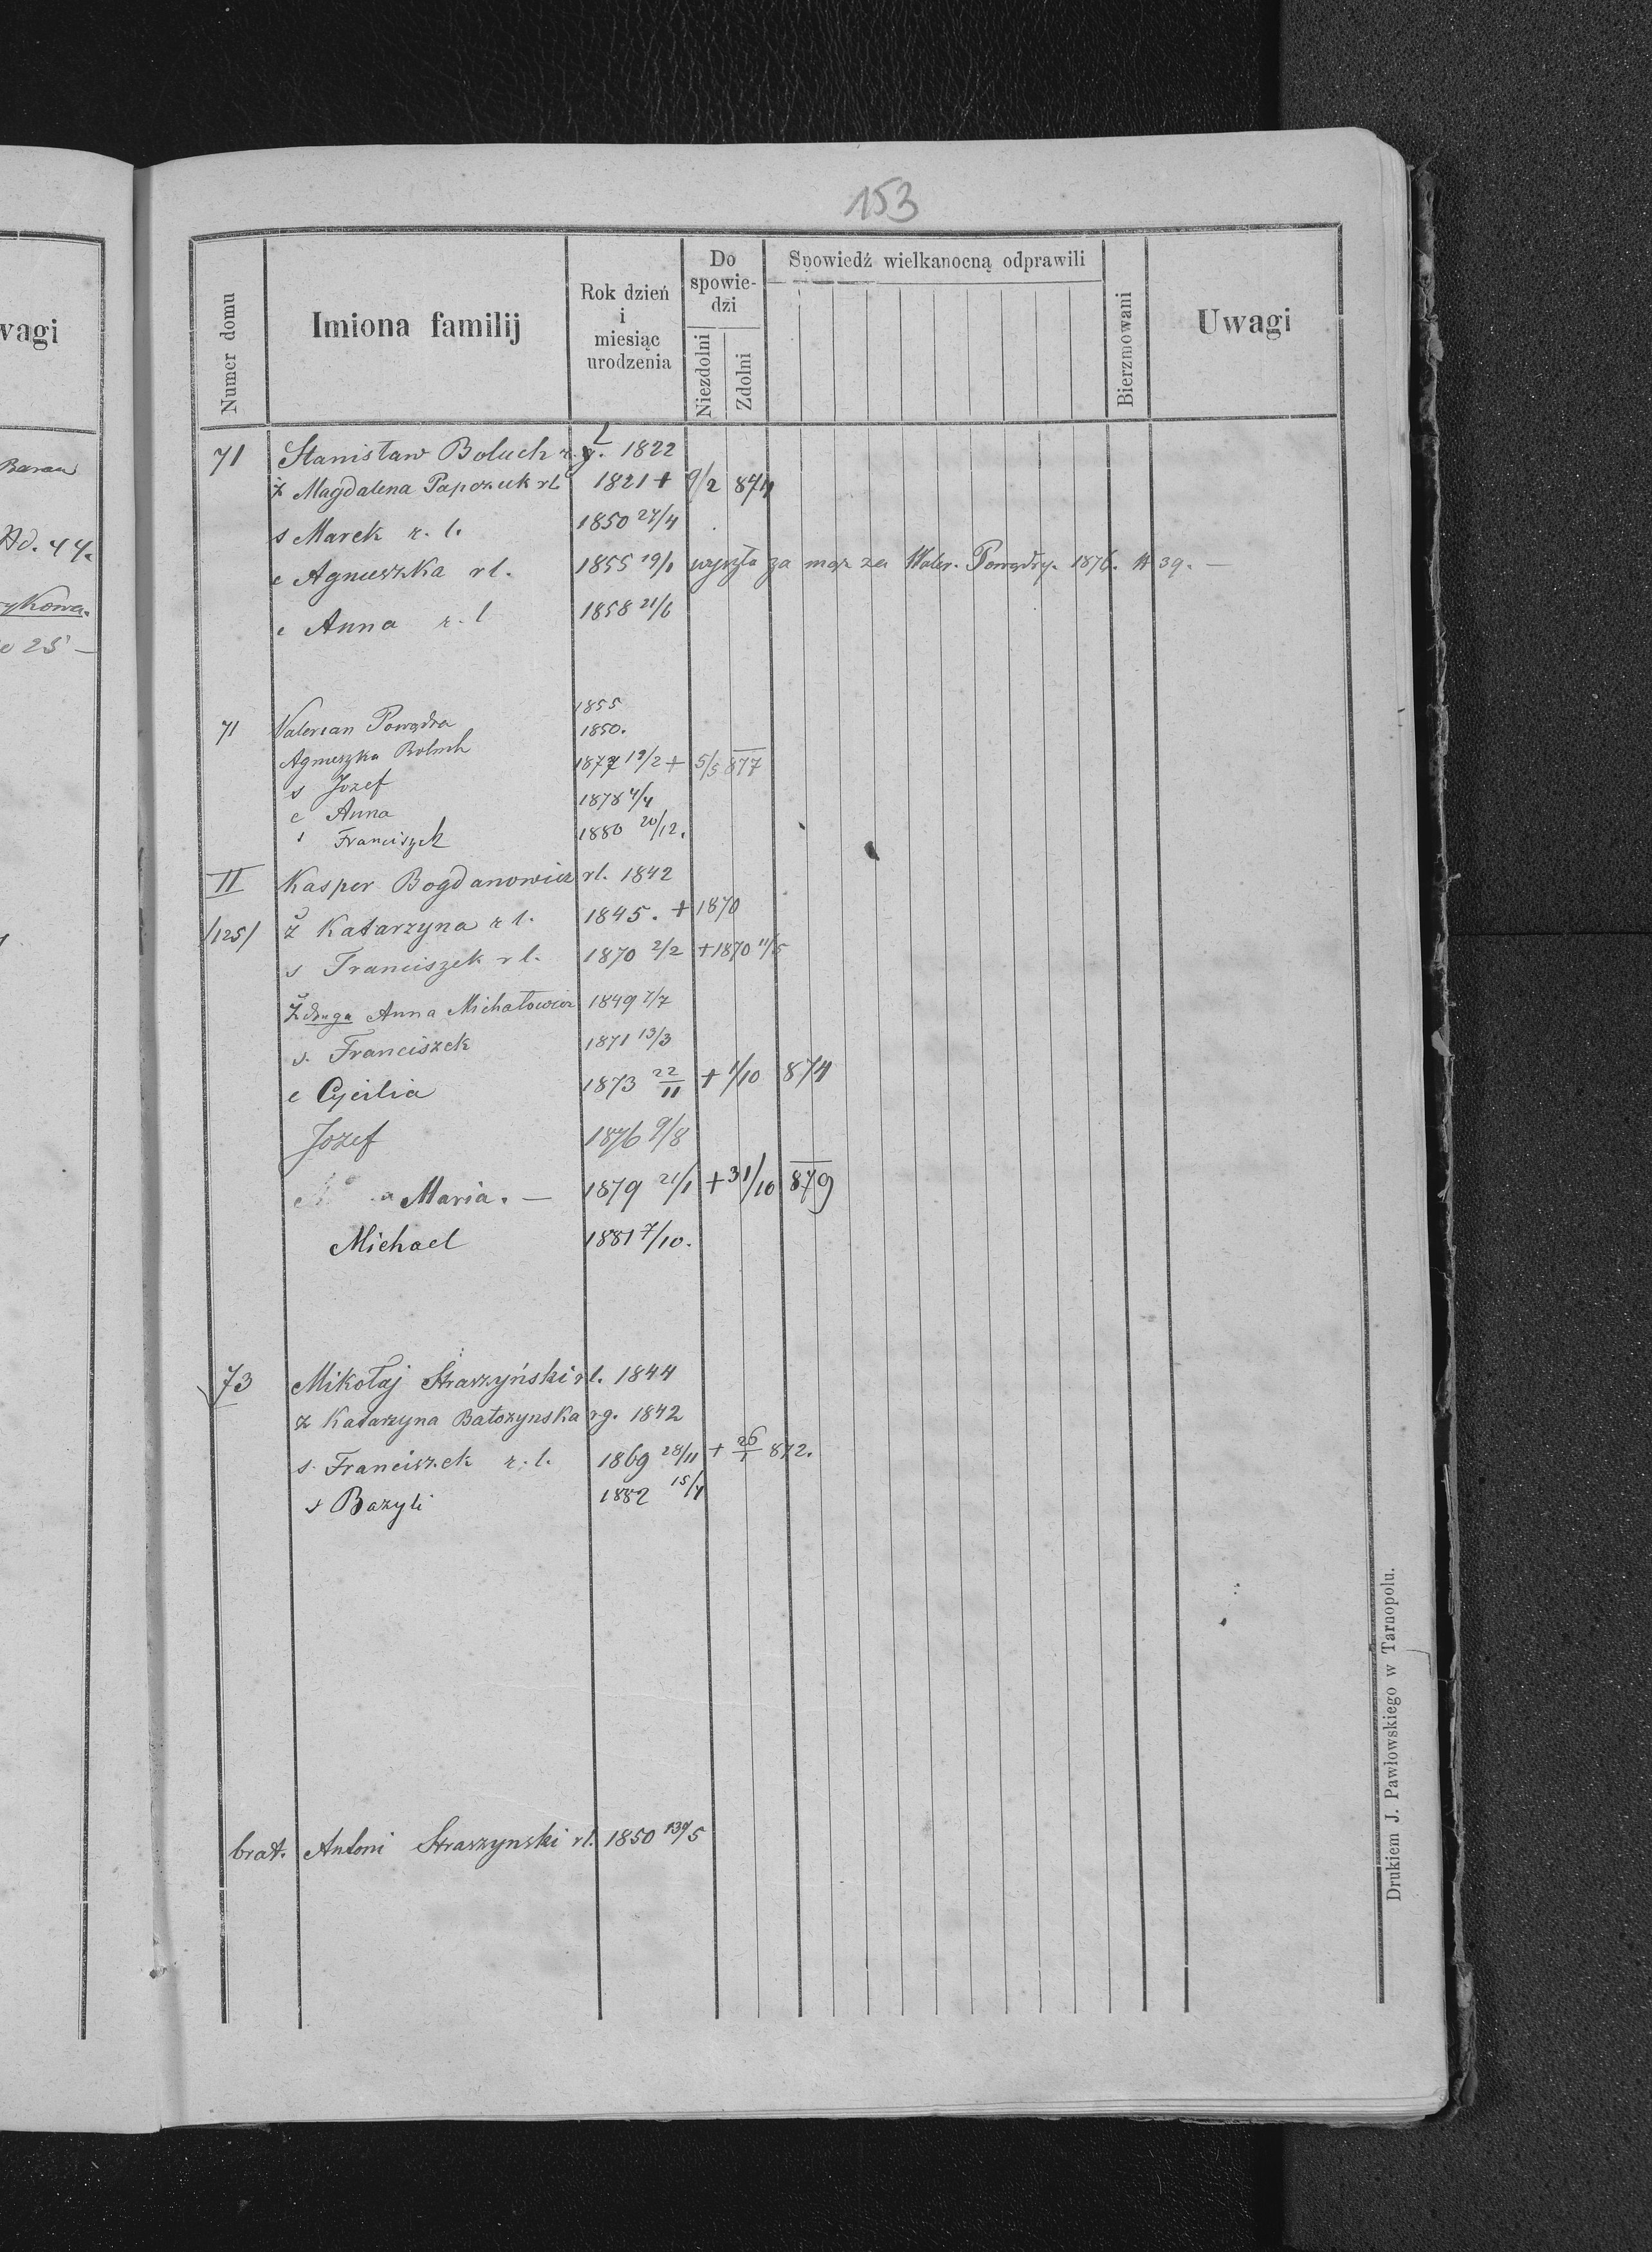 153
wagi
Baran
Ad. 44.
25 —
Numer domu
Imiona familij
Rok dzień
i
miesiąc
urodzenia
Do
spowie-
dzi
Niezdolni
Zdolni
Spowiedź wielkanocną odprawili
Bierzmowani
Uwagi
71 Stanisław Boluch r. l. 1822
ż Magdalena Papczuk rl 1821 + 9/2 874
s Marek r. l. 1850 24/4
c Agnieszka rl. 1855 19/1 wyszła za mąż za Waler. Powądry. 1876. N 39. —
c Anna r. l 1858 21/6
71 Valerian Powądra 1855
Agnieszka Boluch 1850.
s Jozef 1877 19/2 + 5/5 877
c Anna 1878 4/4
s Franciszek 1880 20/12.
II Kasper Bogdanowicz rl. 1842
/125/ ż Katarzyna r l. 1845. + 1870
s Franciszek r l. 1870 2/2 + 1870 11/5
Ż druga Anna Michałowicz 1849 7/7
s. Franciszek 1871 13/3
c Cycilia 1873 22/11 + 1/10 874
Jozef 1876 9/8
Maria. — 1879 21/1 + 31/10 879
Michael 1881 7/10.
73 Mikołaj Straszyński rl. 1844
ż Katarzyna Batożynska rg. 1842
s. Franciszek r. l. 1869 28/11 + 26/1 872.
s Bazyli 1882 15/1
brat. Antoni Straszynski rl. 1850 /5
Drukiem J. Pawłowskiego w Tarnopolu.